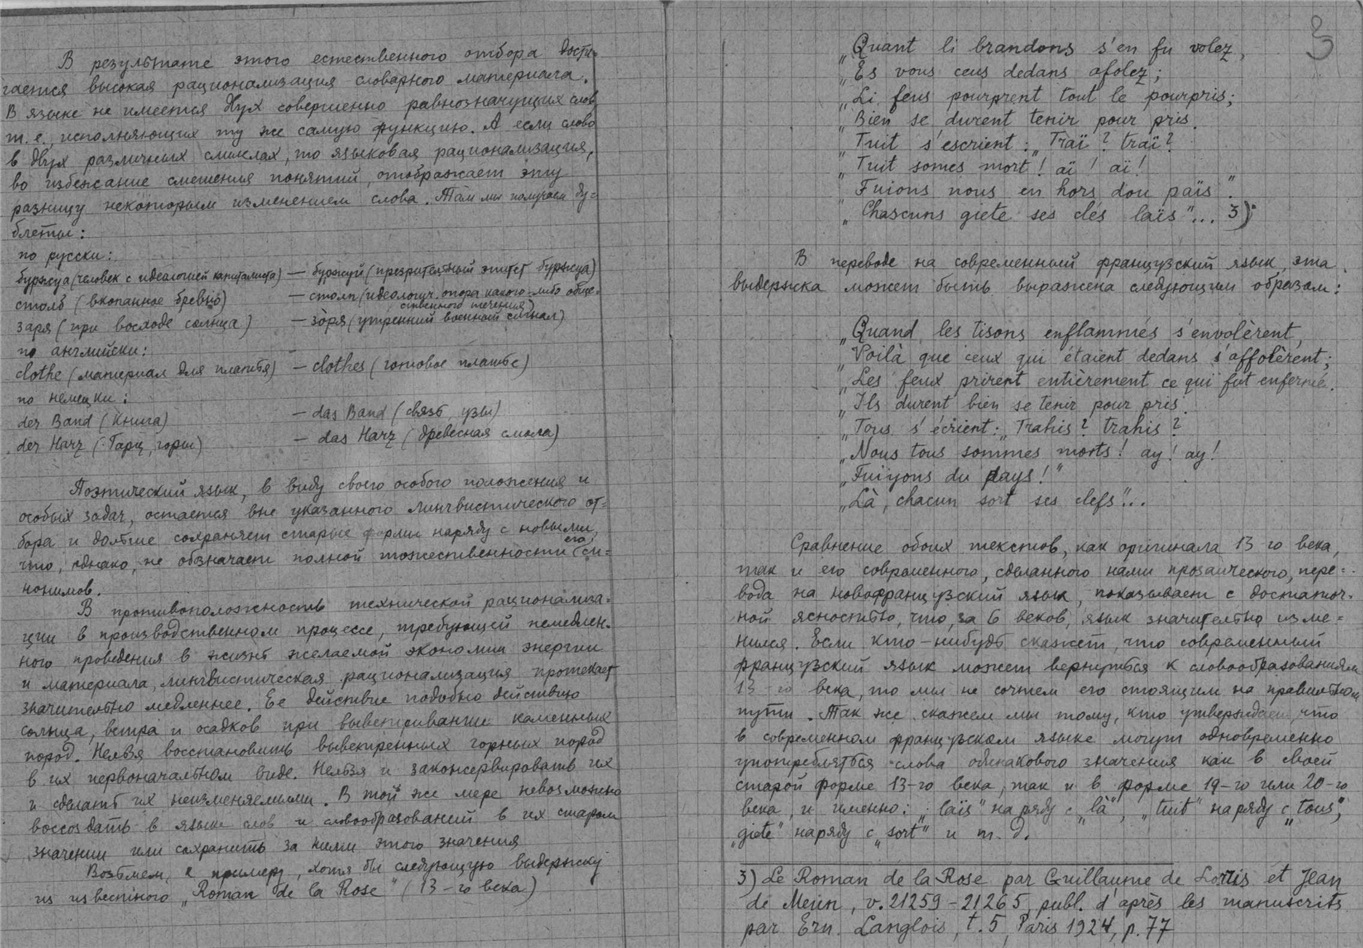 В результате этого естественного отбора дости-
гается высокая рационализация словарного материала.
В языке не имеется двух совершенно равнозначущих слов,
т.е., исполняющих ту же самую функцию. А если слово
в двух различных смыслах, то языковая рационализация,
во избежание смешения понятий, отображает эту
разницу некоторым изменением слова. Там мы получаем ду-
блеты:
по русски:
буржуа (человек с идеологией капиталиста) — буржуй (презрительный эпитет буржуа)
столб (вкопанное бревно) — столп (идеологич. опора какого-либо обще-
ственного течения)
заря (при восходе солнца) — зо́ря (утренний военный сигнал)
по английски:
clothe (материал для платья) — clothes (готовое платье)
по немецки:
der Band (книга) — das Band (связь, узы)
der Harz (Гарц, горы) — das Harz (древесная смола)
Поэтический язык, в виду своего особого положения и
особых задач, остается вне указанного лингвистического от-
бора и дольше сохраняет старые формы наряду с новыми,
что, однако, не обозначает полной тожественности его си-
нонимов.
В противоположность технической рационализа-
ции в производственном процессе, требующей немедлен-
ного проведения в жизнь желаемой экономии энергии
и материала, лингвистическая рационализация протекает
значительно медленнее. Ее действие подобно действию
солнца, ветра и осадков при выветривании каменных
пород. Нельзя восстановить выветренных горных пород
в их первоначальном виде. Нельзя и законсервировать их
и сделать их неизменяемыми. В той же мере невозможно
воссоздать в языке слов и словообразований в их старом
значении или сохранить за ними этого значения
Возьмем, к примеру, хотя бы следующую выдержку
из известного „Roman de la Rose" (13-го века)
3
„Quant li brandons s'en fu volez,
„Es vous ceus dedans afolez;
„Li feus pourprent tout le pourpris;
„Bien se durent tenir pour pris.
„Tuit s'escrient: „Traï? traï?
„Tuit somes mort! aï! aï!
„Fuions nous en hors dou païs".
„Chascuns giete ses clés laïs"... 3)
В переводе на современный французский язык, эта
выдержка может быть выражена следующим образом:
„Quand les tisons enflammés s'envolèrent,
„Voilà que ceux qui étaient dedans s'affolèrent;
„Les feux prirent entièrement ce qui fut enfermé.
„Ils durent bien se tenir pour pris.
„Tous s'écrient: „Trahis? trahis?
„Nous tous sommes morts! ay! ay!
„Fuiyons du pays!"
„Là, chacun sort ses clefs"...
Сравнение обоих текстов, как оригинала 13-го века,
так и его современного, сделанного нами прозаического, пере-
вода на новофранцузский язык, показывает с достаточ-
ной ясностью, что, за 6 веков, язык значительно изме-
нился. Если кто-нибудь скажет, что современный
французский язык может вернуться к словообразованиям
13-го века, то мы не сочтем его стоящим на правильном
пути. Так же скажем мы тому, кто утверждает, что
в современном французском языке могут одновременно
употребляться слова одинакового значения как в своей
старой форме 13-го века, так и в форме 19-го или 20-го
века, и именно: „laïs" наряду с „là", „tuit" наряду с „tous",
„giete" наряду с „sort" и т. д.
3) Le Roman de la Rose par Guillaume de Lorris et Jean
de Meun, v. 21259-21265, publ. d'après les manuscrits
par Ern. Langlois, t. 5, Paris 1924, p. 77